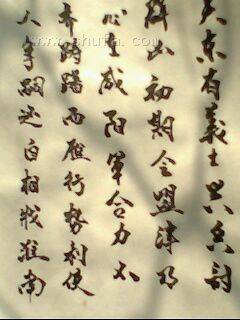 关東有義士兴兵討
群凶初期会盟津乃
心在咸阳军合力不
齐踌躇而雁行势利使
人争嗣还自相戕淮南